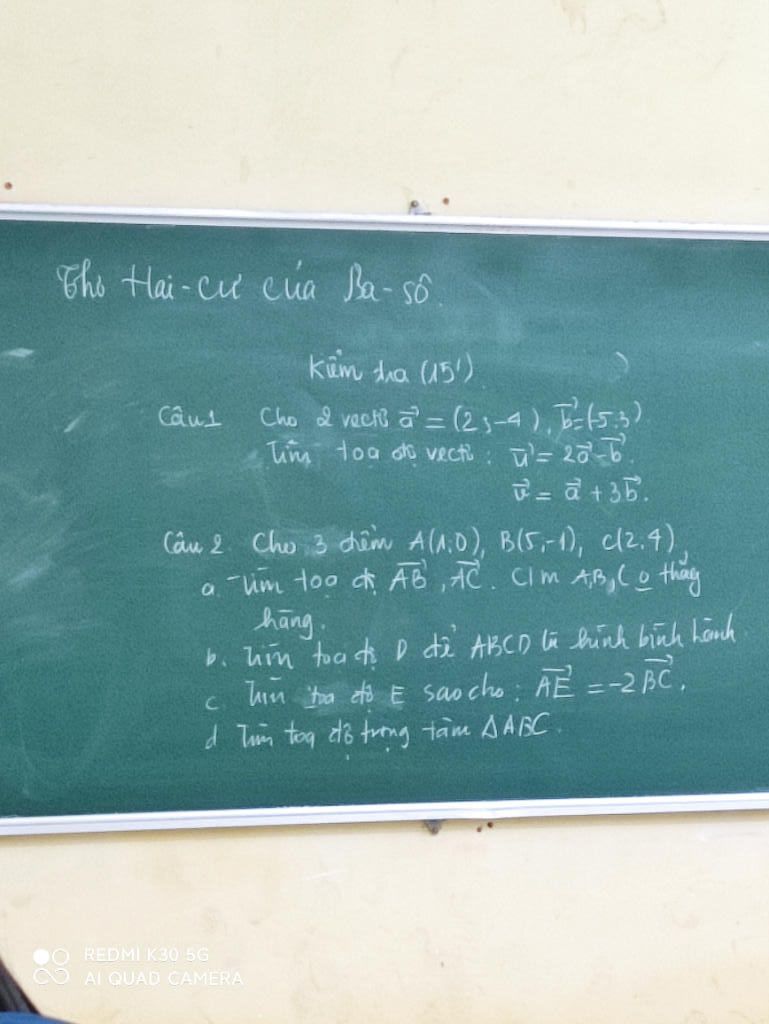 Thơ Hai-cư của Ba-sô.
Kiểm tra (15').
Câu 1 Cho 2 vectơ a⃗ = (2; -4), b⃗ = (-5; 3)
Tìm toạ độ vectơ: u⃗ = 2a⃗ - b⃗.
v⃗ = a⃗ + 3b⃗.
Câu 2. Cho 3 điểm A(1;0), B(5;-1), C(2;4)
a. Tìm toạ độ AB⃗, AC⃗. C/m A,B,C o thẳng
hàng.
b. Tìm toạ độ D để ABCD là hình bình hành.
c Tìm toạ độ E sao cho: AE⃗ = -2BC⃗.
d Tìm toạ độ trọng tâm ΔABC.
REDMI K30 5G
AI QUAD CAMERA